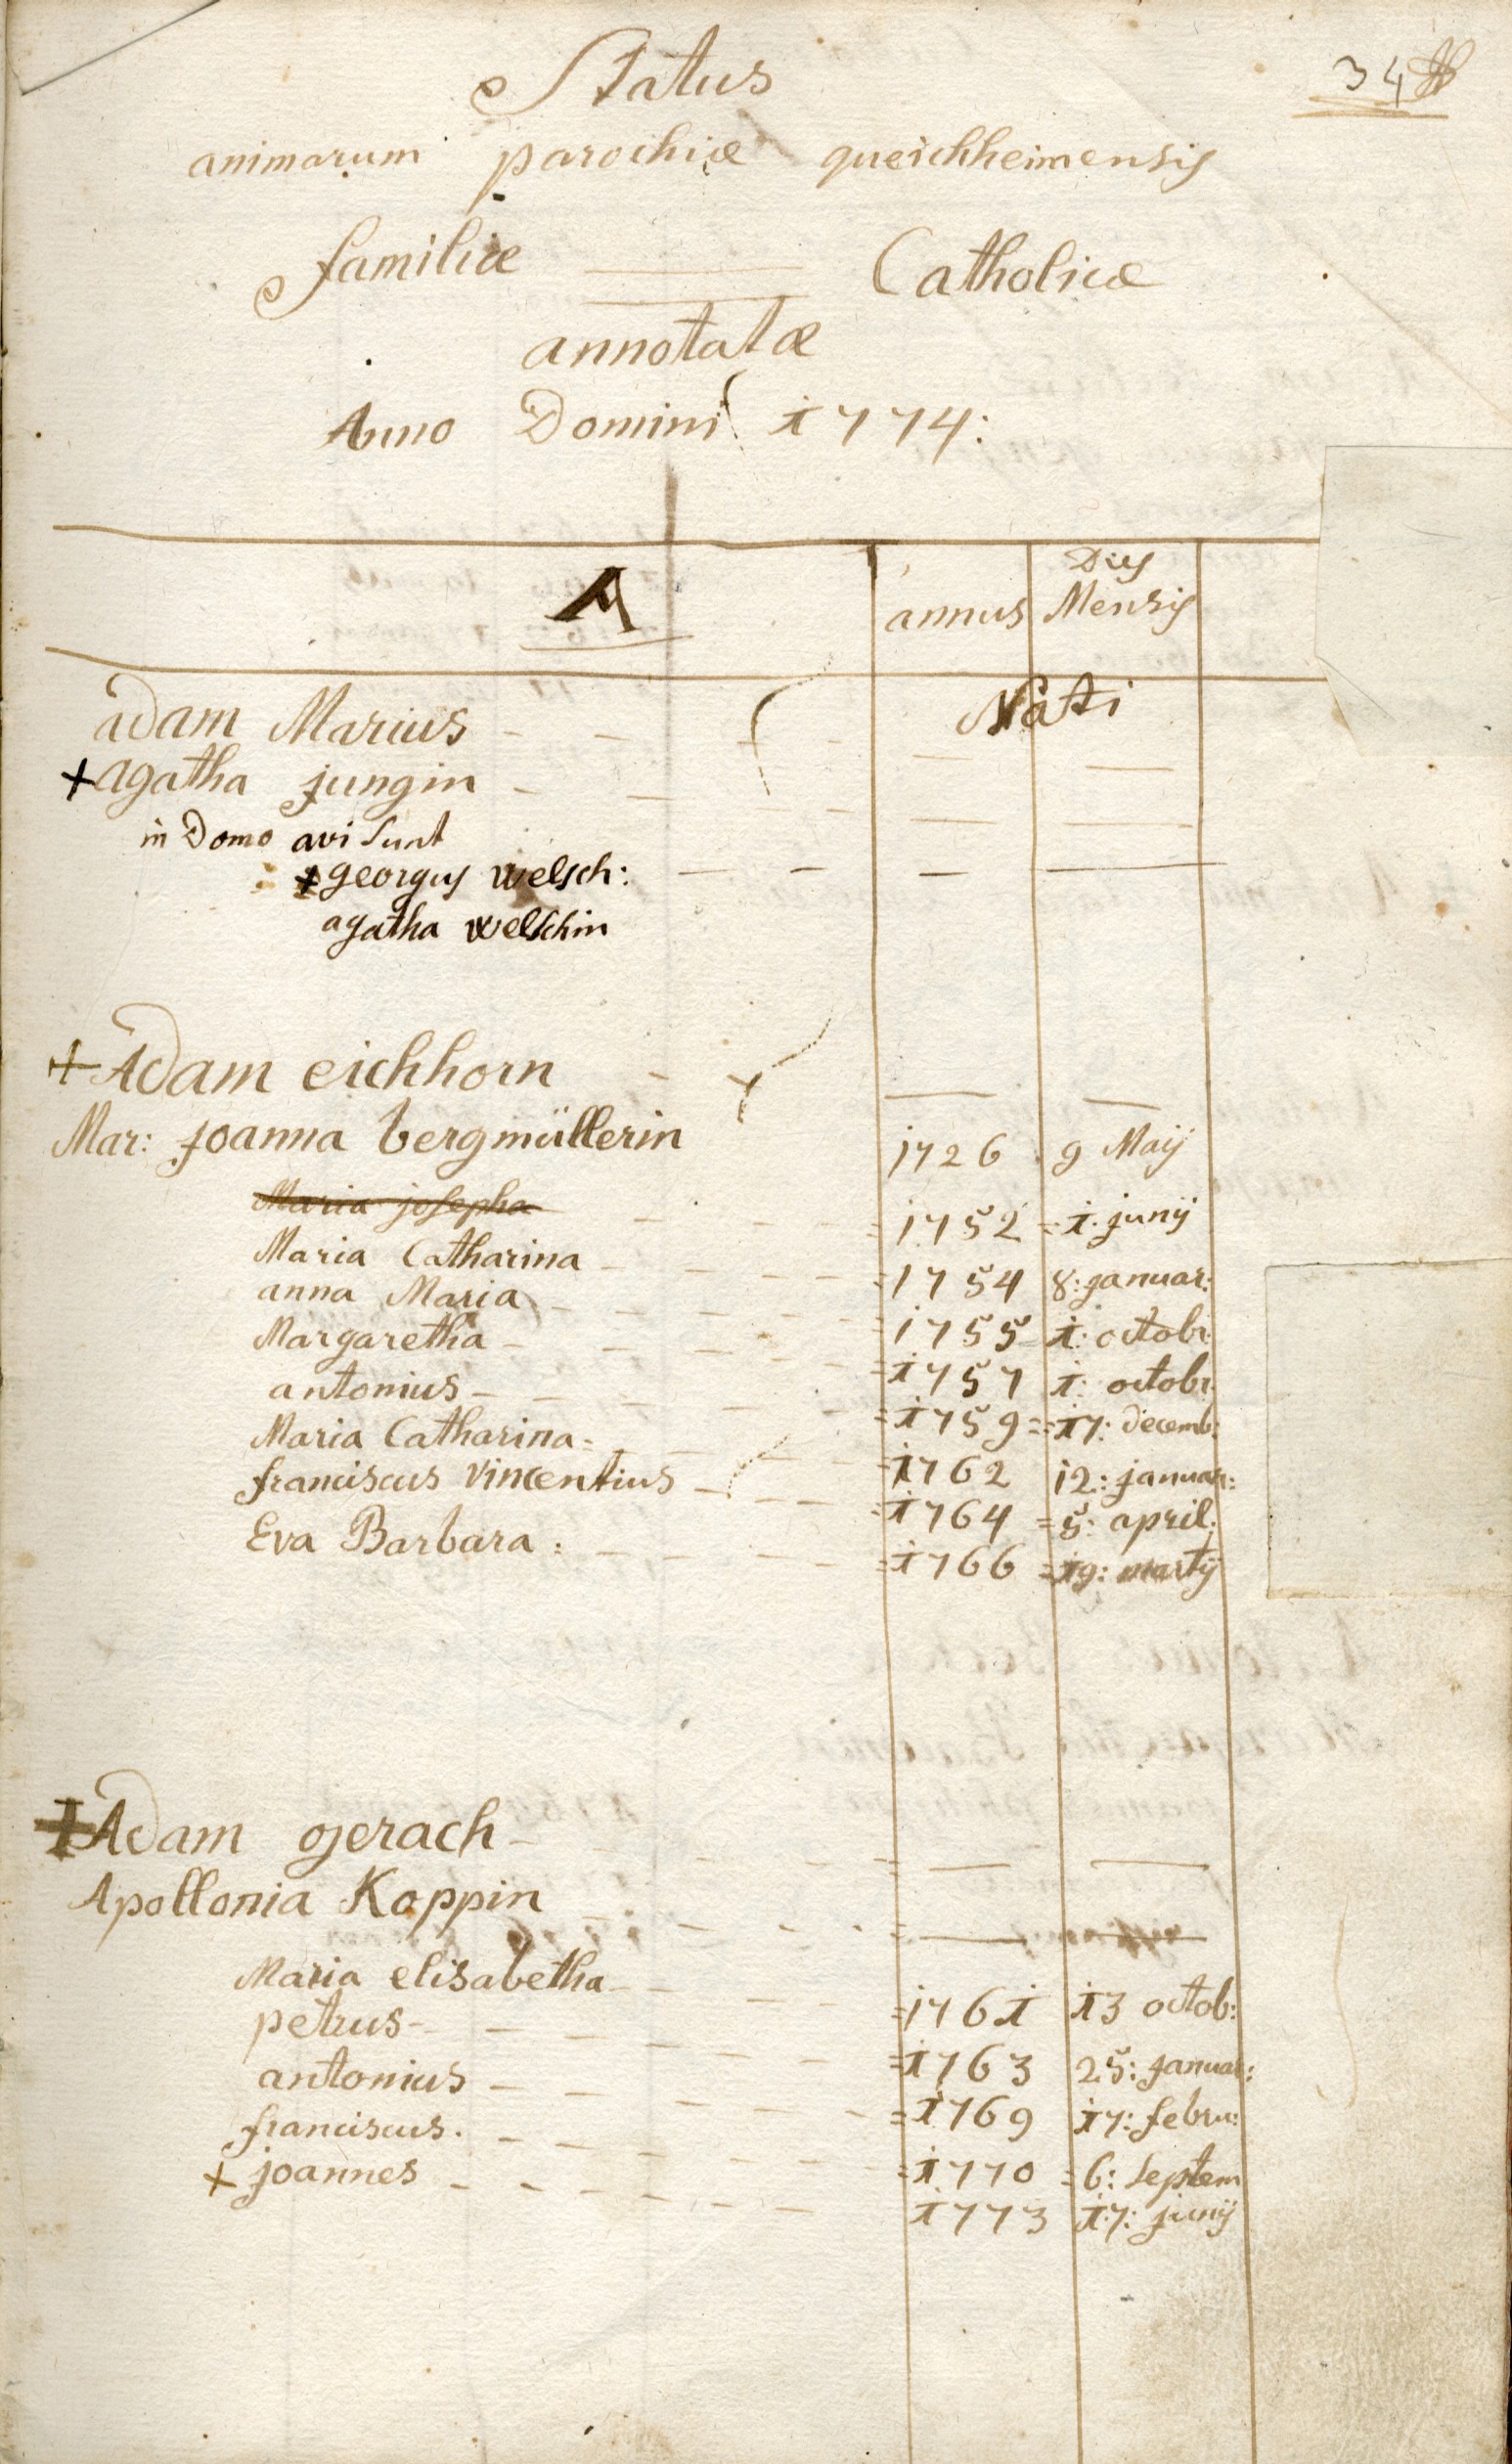 34
Status
animarum parochiæ queichheimensis
familiæ Catholicæ
annotatæ
Anno Domini 1774:
A annus Dies Mensis
Nati
adam Marius
+ agatha jungin
in Domo avi sunt
+ georgus welsch:
agatha welschin
+ Adam eichhorn
Mar: joanna bergmüllerin 1726 9 Maij
Maria josepha 1752 1. junij
Maria Catharina 1754 8: januar:
anna Maria 1755 1: octobr:
Margaretha 1757 1: octobr.
antonius 1759 17: decemb:
Maria Catharina 1762 12: januar:
franciscus vincentius 1764 5: april:
Eva Barbara: 1766 19: martij
+ Adam gerach
Apollonia Koppin
Maria elisabetha 1761 13 octob:
petrus 1763 25: januar:
antonius 1769 17: febru:
franciscus. 1770 6: septem
+ joannes 1773 17: junij